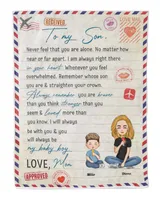 DELIVERED
To my Son,
Never feel that you are alone. No matter how
near or far apart. I am always right there
in your heart. Whenever you feel
overwhelmed. Remember whose son
you are & straighten your crown.
Always remember you are braver
than you think stronger than you
seem & smarter than you know &
loved more than you know. I will
always be with you & you
will always be
my baby boy.
LOVE, Mom
APPROVED